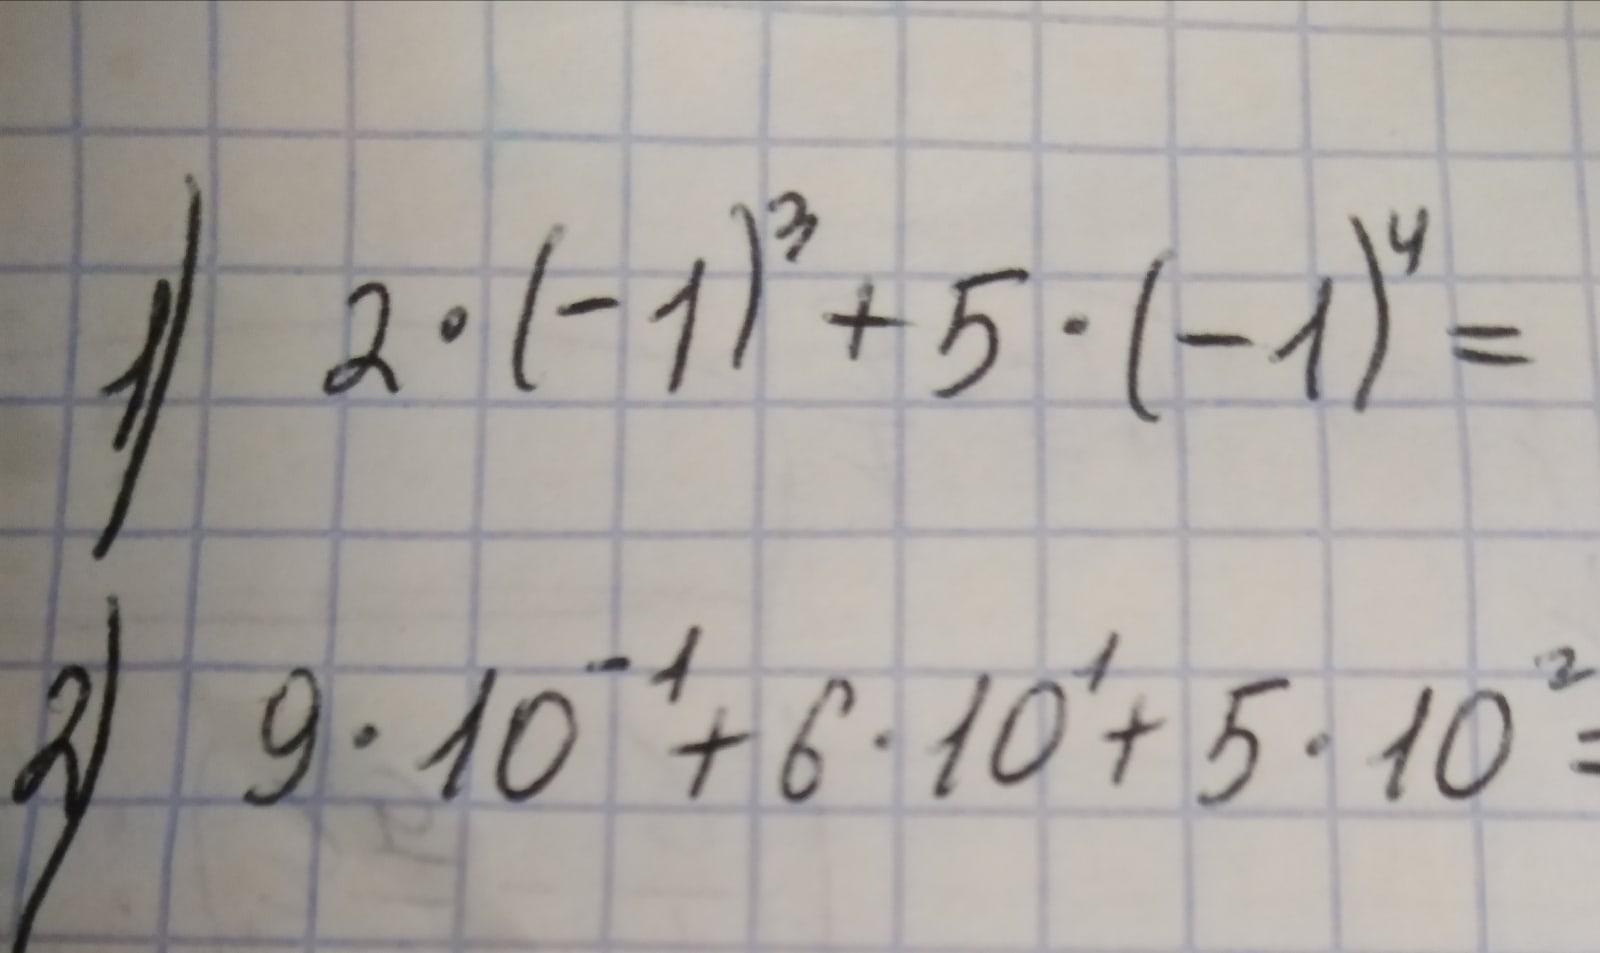 1) 2·(-1)³+5·(-1)⁴=
2) 9·10⁻¹+6·10¹+5·10²=